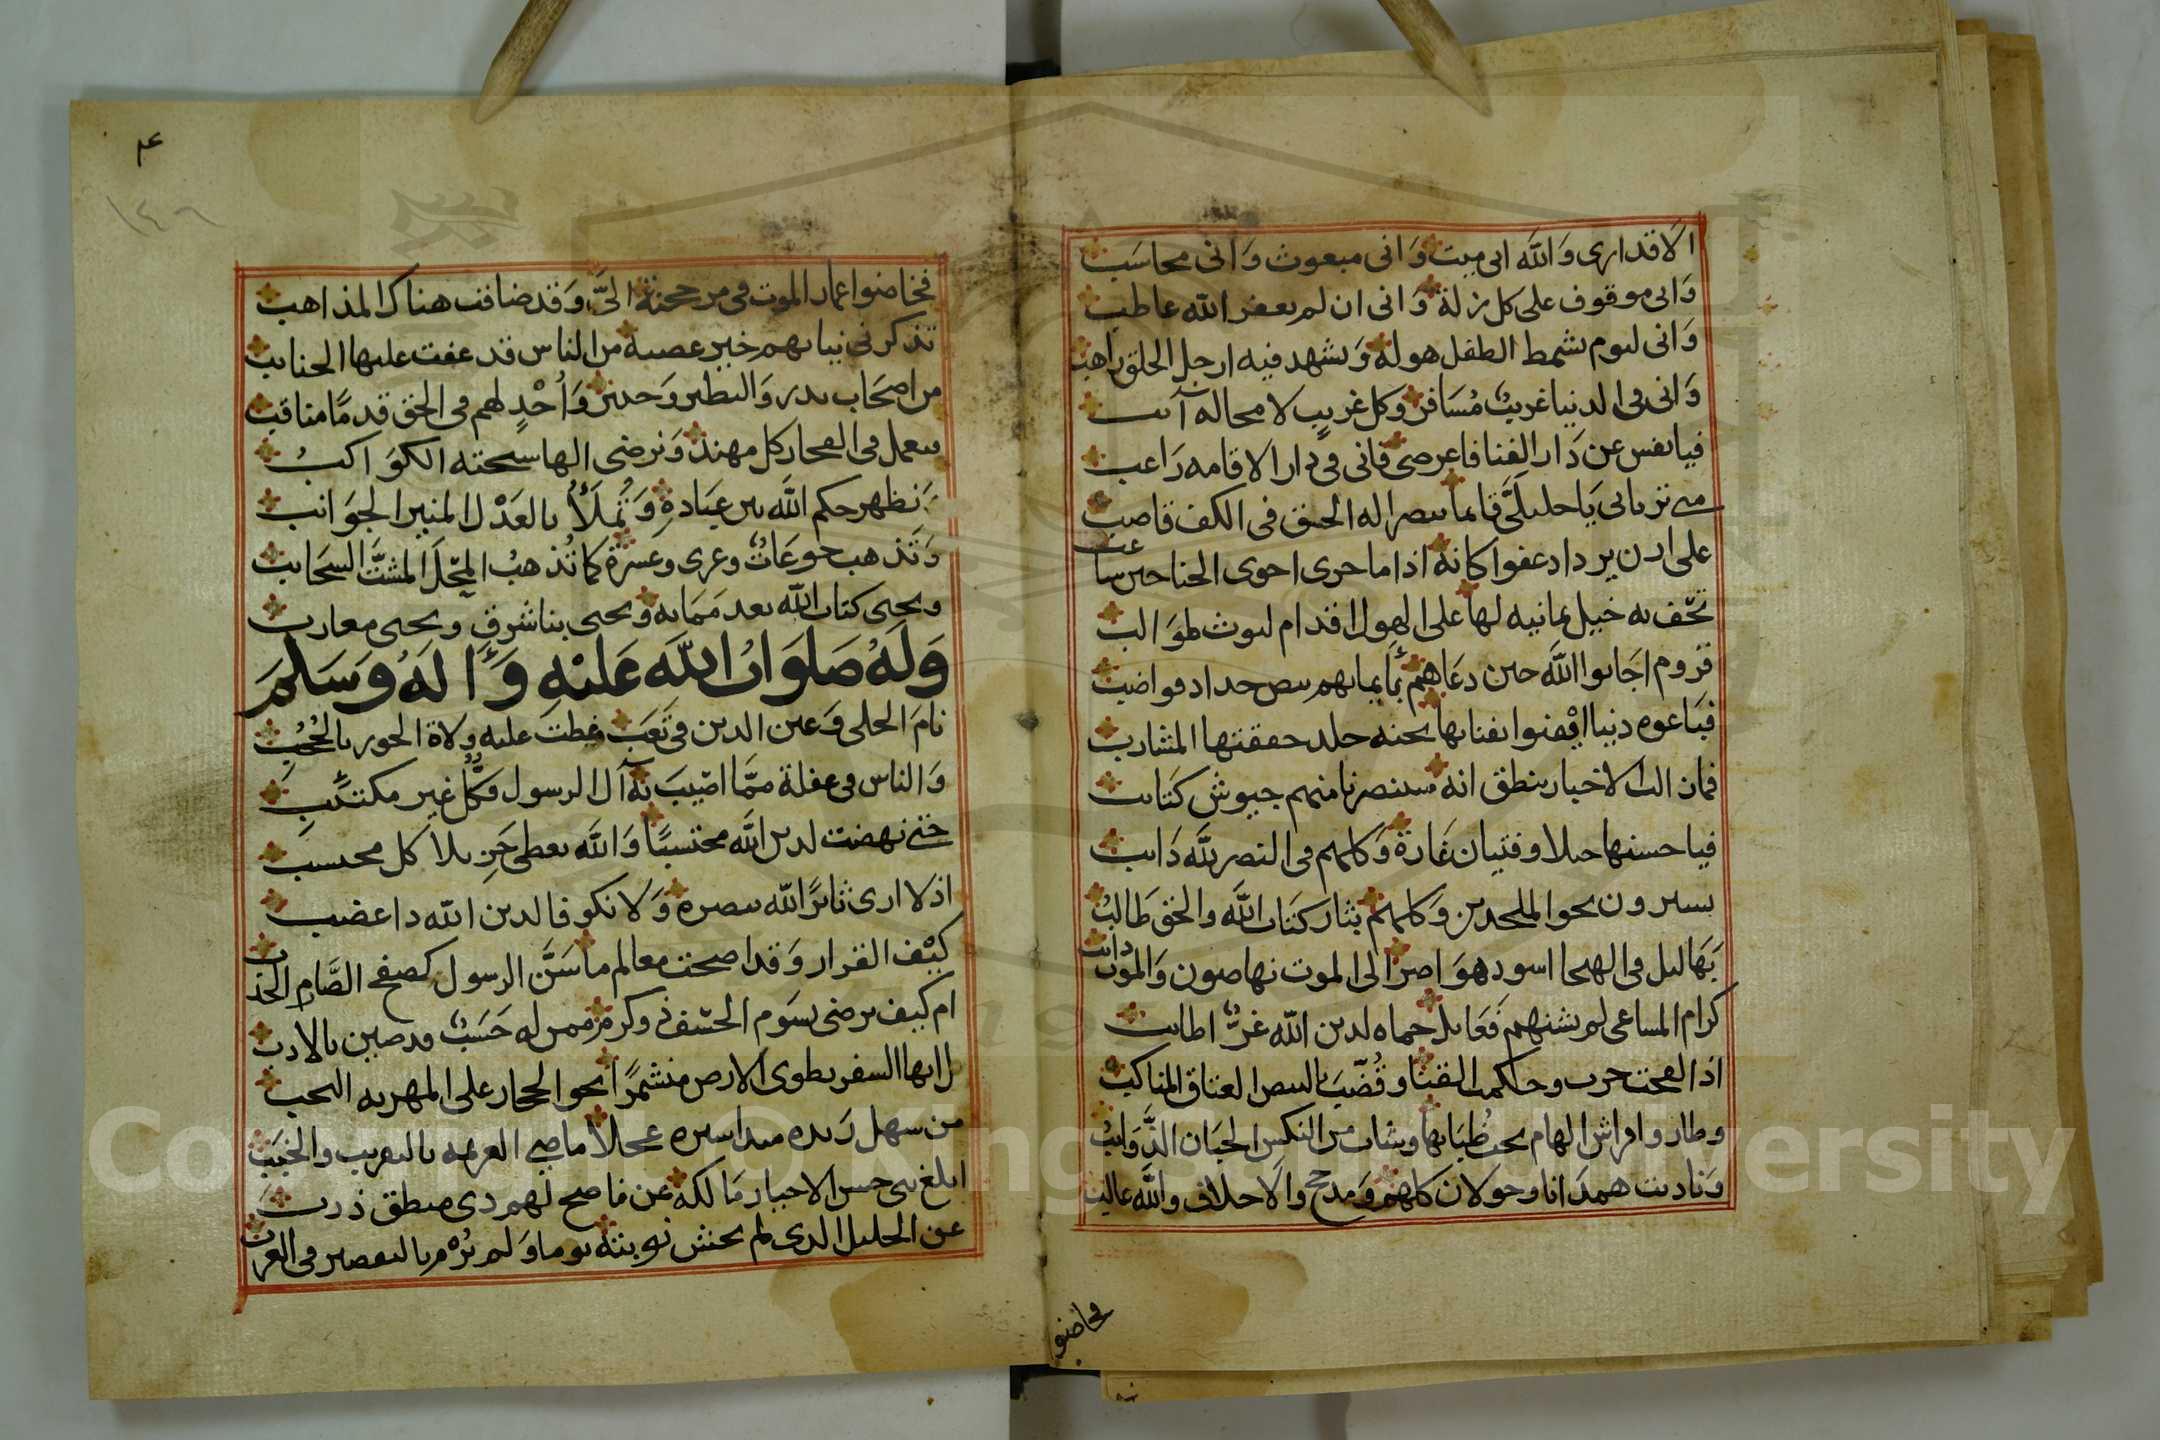 الا قد ارى والله انى ميت وانى مبعوث وانى محاسب
وانى موقوف على كل زلة وانى ان لم يغفر الله عاطب
وانى ليوم يشمط الطفل هوله ويشهد فيه ارجل الخلق راهب
وانى فى الدنيا غريب مسافر وكل غريب لا محاله آئب
فيا نفس عن دار الفنا فاعرضى فانى فى دار الاقامه راغب
متى تريانى يا خليلى قائما بنصر اله الحق فى الكف قاضب
على
تحف به خيل يمانيه لها على الهول اقدام ليوث طوالب
قروم اجابوا الله حين دعاهم بأيمانهم بيض حداد قواضب
فباعوه دنيا ايقنوا بفنائها بجنه خلد حققتها المشارب
فان الاخبار ينطق انه ستنصرنا منهم جيوش كتائب
فيا حسنها خيلا وفتيان غارة وكلهم فى النصر لله دائب
يسيرون نحو الملحدين وكلهم بثار كتاب الله والحق طالب
بهاليل فى الهيجا اسود هواصر الى الموت نهاضون والموت دائب
كرام المساعى لم يشنهم فعايل حماه لدين الله غر اطائب
اذا لقحت حرب وحكمت القنا وقضب بالبيض العتاق المناكب
وطار وافراش الهام تحت ظباتها وشاب من النكس الجبان الذوائب
ونادت همدانا وخولان كلهم ومذحج والاحلاف والله غالب
فخاضوا
٤
١٤٦
فخاضوا غمار الموت فى مرجحنة الى وقد ضاقت هناك المذاهب
تذكرنى نياتهم خير عصبة من الناس قد عفت عليها الجنائب
من اصحاب بدر والنظير وحنين وأحد لهم فى الحق قدما مناقب
بعمل فى الفجار كل مهند ونرضى الها سبحته الكواكب
ونظهر حكم الله بين عباده وتملأ بالعدل المنير الجوانب
وتذهب جوعات وعرى وعسرة كما تذهب المحل المشت السحائب
ويحيى كتاب الله بعد مماته ويحيى بنا شرق ويحيى مغارب
وله صلوات الله عليه وآله وسلم
نام الخلى وعين الدين فى تعب غطت عليه ولاة الجور بالحجب
والناس فى غفلة مما اصيب به آل الرسول فكل غير مكتئب
حتى نهضت لدين الله محتسبا والله يعطى جزيلا كل محتسب
اذ لا ارى ثائرا لله ينصره ولا نكوفا لدين الله ذا غضب
كيف القرار وقد اضحت معالم ما سن الرسول كصفح الصارم الخذب
ام كيف يرضى بسوم الخسف ذو كرم ممن له حسب قد صين بالادب
يا ايها السفر يطوى الارض منشمرا نحو الحجاز على المهريه النجب
من سهل زبده مبدا سيره عجلا ماضى العزيمه بالتقريب والخبب
ابلغ بنى حسن الاخيار مالكه عن ناصح لهم ذى منطق ذرب
عن الخليل الذى لم يخش نوبته يوما ولم يرم بالتقصير فى